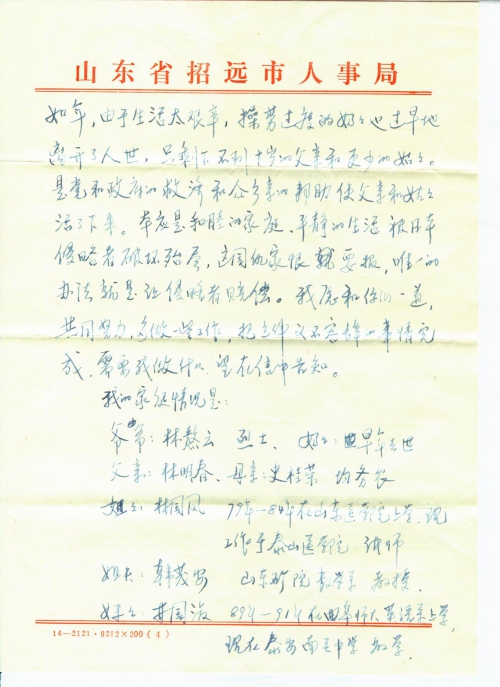 山东省招远市人事局
年,由于生活太艰辛,操劳过度的奶奶也过早地
离开了人世,只剩下不到十岁的父亲和更少的姑姑。
是党和政府的救济和众乡亲的帮助使父亲和姑姑
活了下来。本应是和睦的家庭、平静的生活被日本
侵略者破坏殆尽,这国仇家恨就要报,唯一的
办法就是让侵略者赔偿。我愿和你们一道,
共同努力,多做一些工作,把这件义不容辞的事情完
成,需要我做什么,望在信中告知。
我的家庭情况是:
爷爷:林 云 烈士、奶奶:早年去世
父亲:林明春、母亲:史桂荣 均务农
姐姐:林国凤 79年—84年在山东医学院上学,现
工作于泰山医学院 讲师
姐夫:韩茂安 山东矿院数学系 教授
林国 89年—91年在曲阜师大英语系上学,
现在泰安南关中学 教学.
14-2121·9212×200(4)